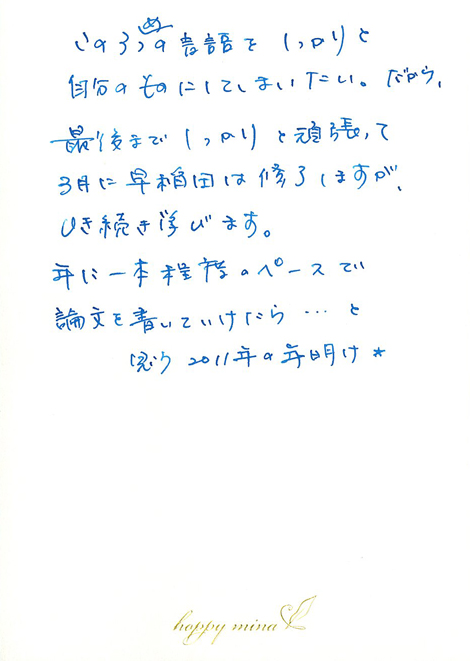 自分のものにしてしまいたい。だから、
最後までしっかりと頑張って
3月に早稲田は修了しますが、
ひき続き学びます。
年に一本程度のペースで
論文を書いていけたら…と
思う 2011年の年明け★
happy mina